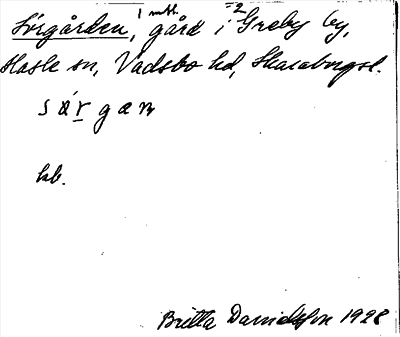 Sörgården, 1 mtl. gård i Greby by,
Hasle sn, Vadsbo hd, Skaraborgs l.
s æ r g æ n
kb.
Britta Davidsson 1928